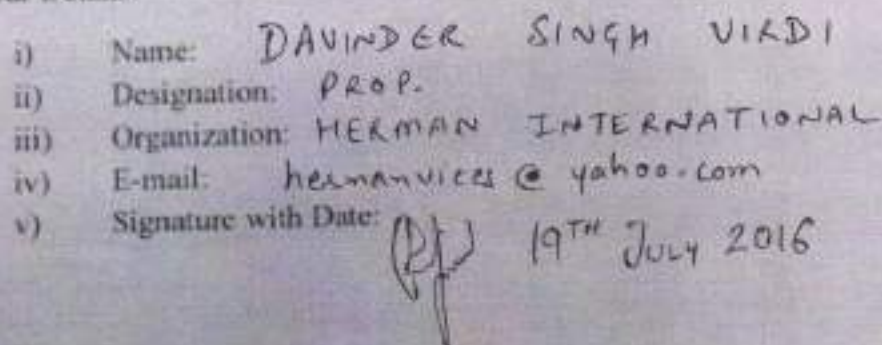 i) Name: DAVINDER SINGH VIRDI
ii) Designation: PROP.
iii) Organization: HERMAN INTERNATIONAL
iv) E-mail: hermanvices@yahoo.com
v) Signature with Date: 19TH JULY 2016